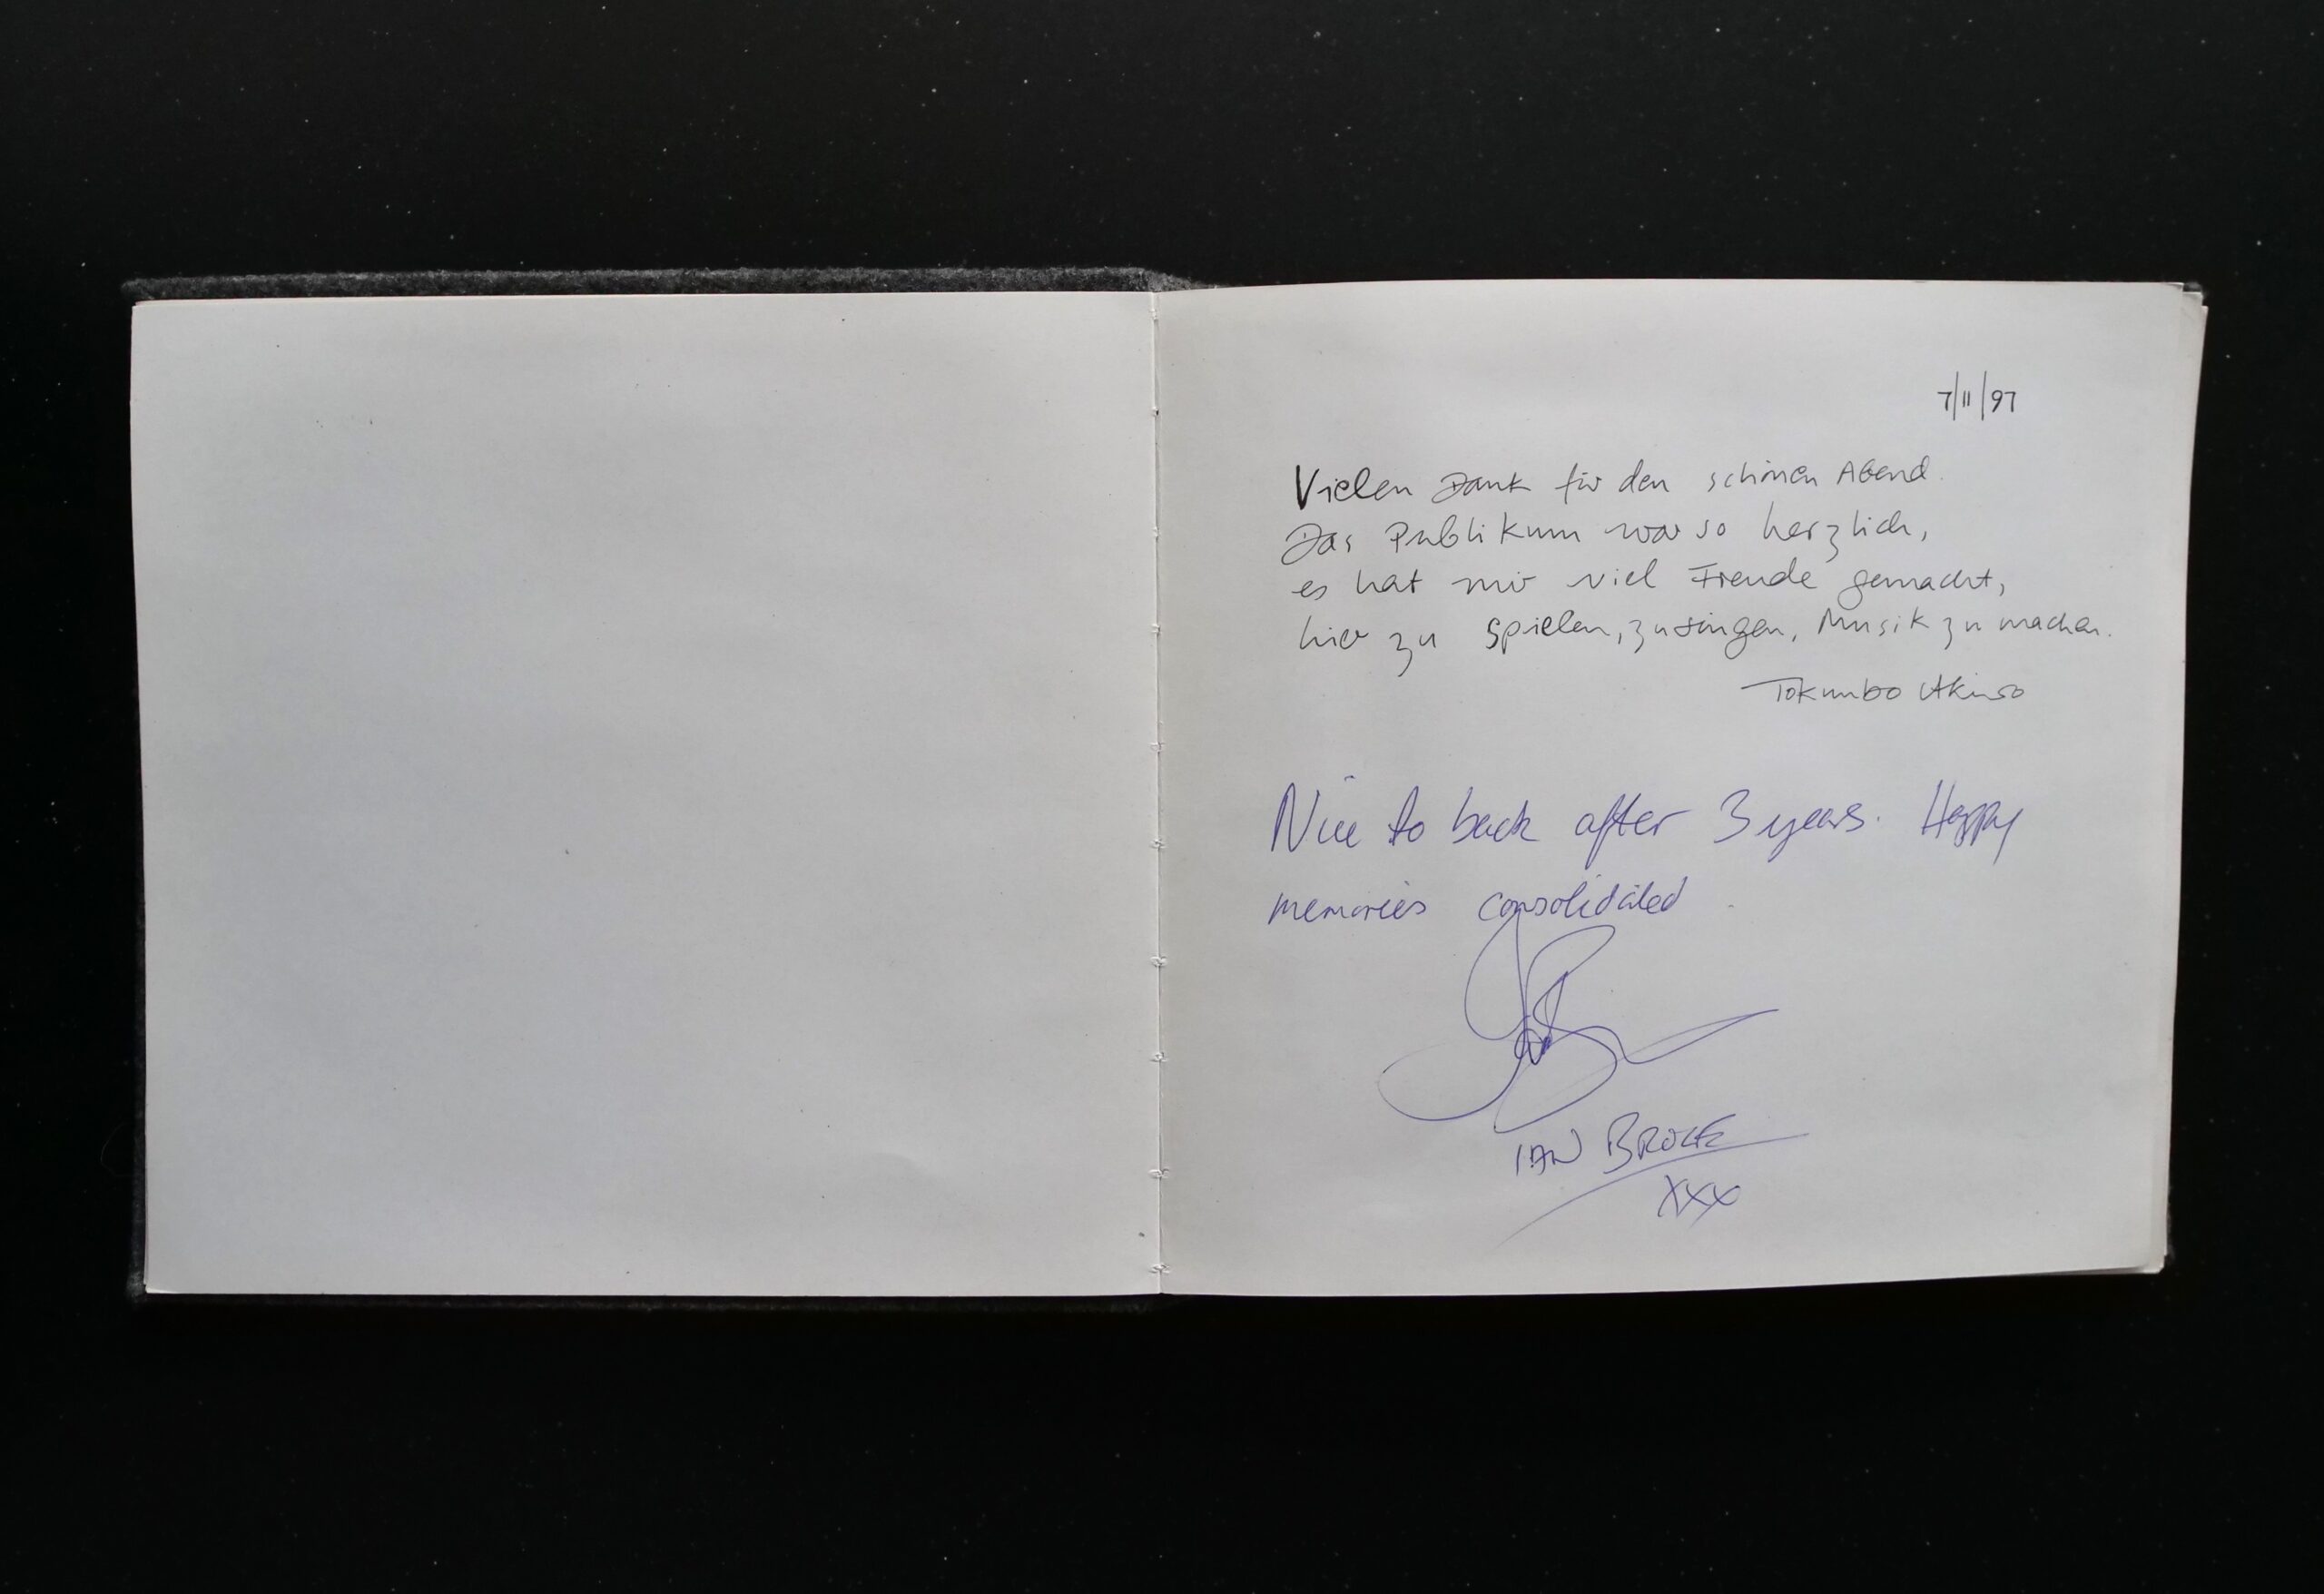 7/11/97
Vielen Dank für den schönen Abend.
Das Publikum war so herzlich,
es hat mir viel Freude gemacht,
hier zu spielen, zu singen, Musik zu machen.
Tokunbo Akinro
Nice to back after 3 years. Happy
memories consolidated.
IAN
XXX